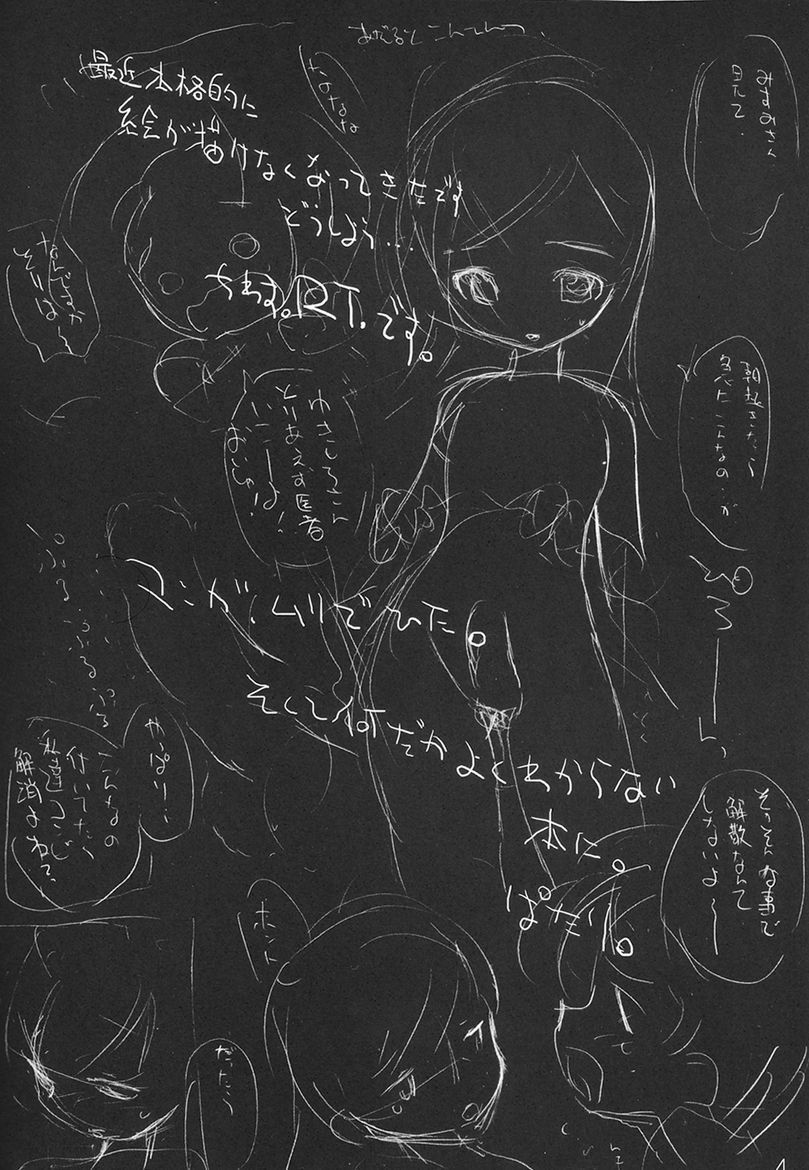 あだると こんてんつ
最近本格的に
絵が描けなくなってきたです
どうしよう…
ちわす。R.T.です。
マンガ、ムリでひた。
そして何だかよくわからない
本に。
ぱたり。
みすみさん
見て
朝起きたら
急にこんなの…が
なんですか
それは〜
ゆきしろさん
とりあえず医者
いこーー!
おいしゃ!
ぷる ぷるぷる
やっぱり…
こんなの
付いてたら
私達コンビ
解消よねっ
そっそんな事で
解散なんて
しないよ〜
ホント
だったら